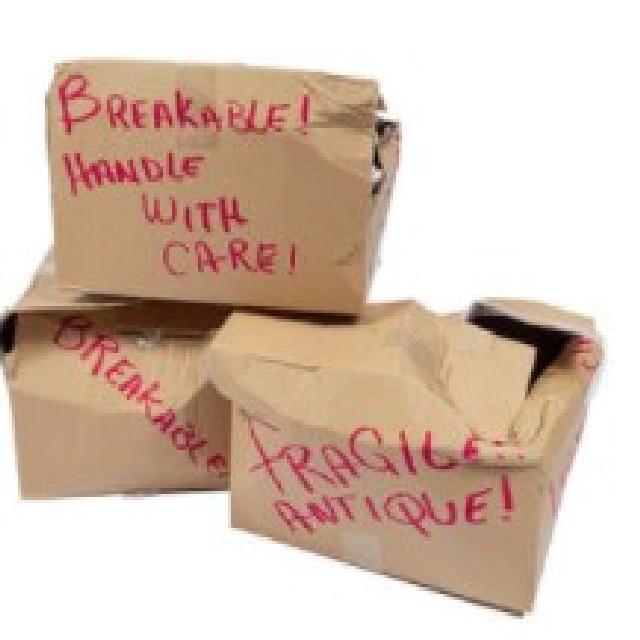 BREAKABLE!
HANDLE
WITH
CARE!
BREAKABLE
FRAGILE!!
ANTIQUE!